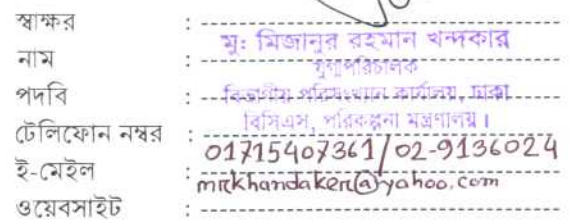 স্বাক্ষর :
নাম : মু: মিজানুর রহমান খন্দকার
যুগ্মপরিচালক
পদবি : বিভাগীয় পরিসংখ্যান কার্যালয়, ঢাকা
বিসিএস, পরিকল্পনা মন্ত্রণালয়।
টেলিফোন নম্বর : 01715407361/02-9136024
ই-মেইল : mrkhandaker@yahoo.com
ওয়েবসাইট :